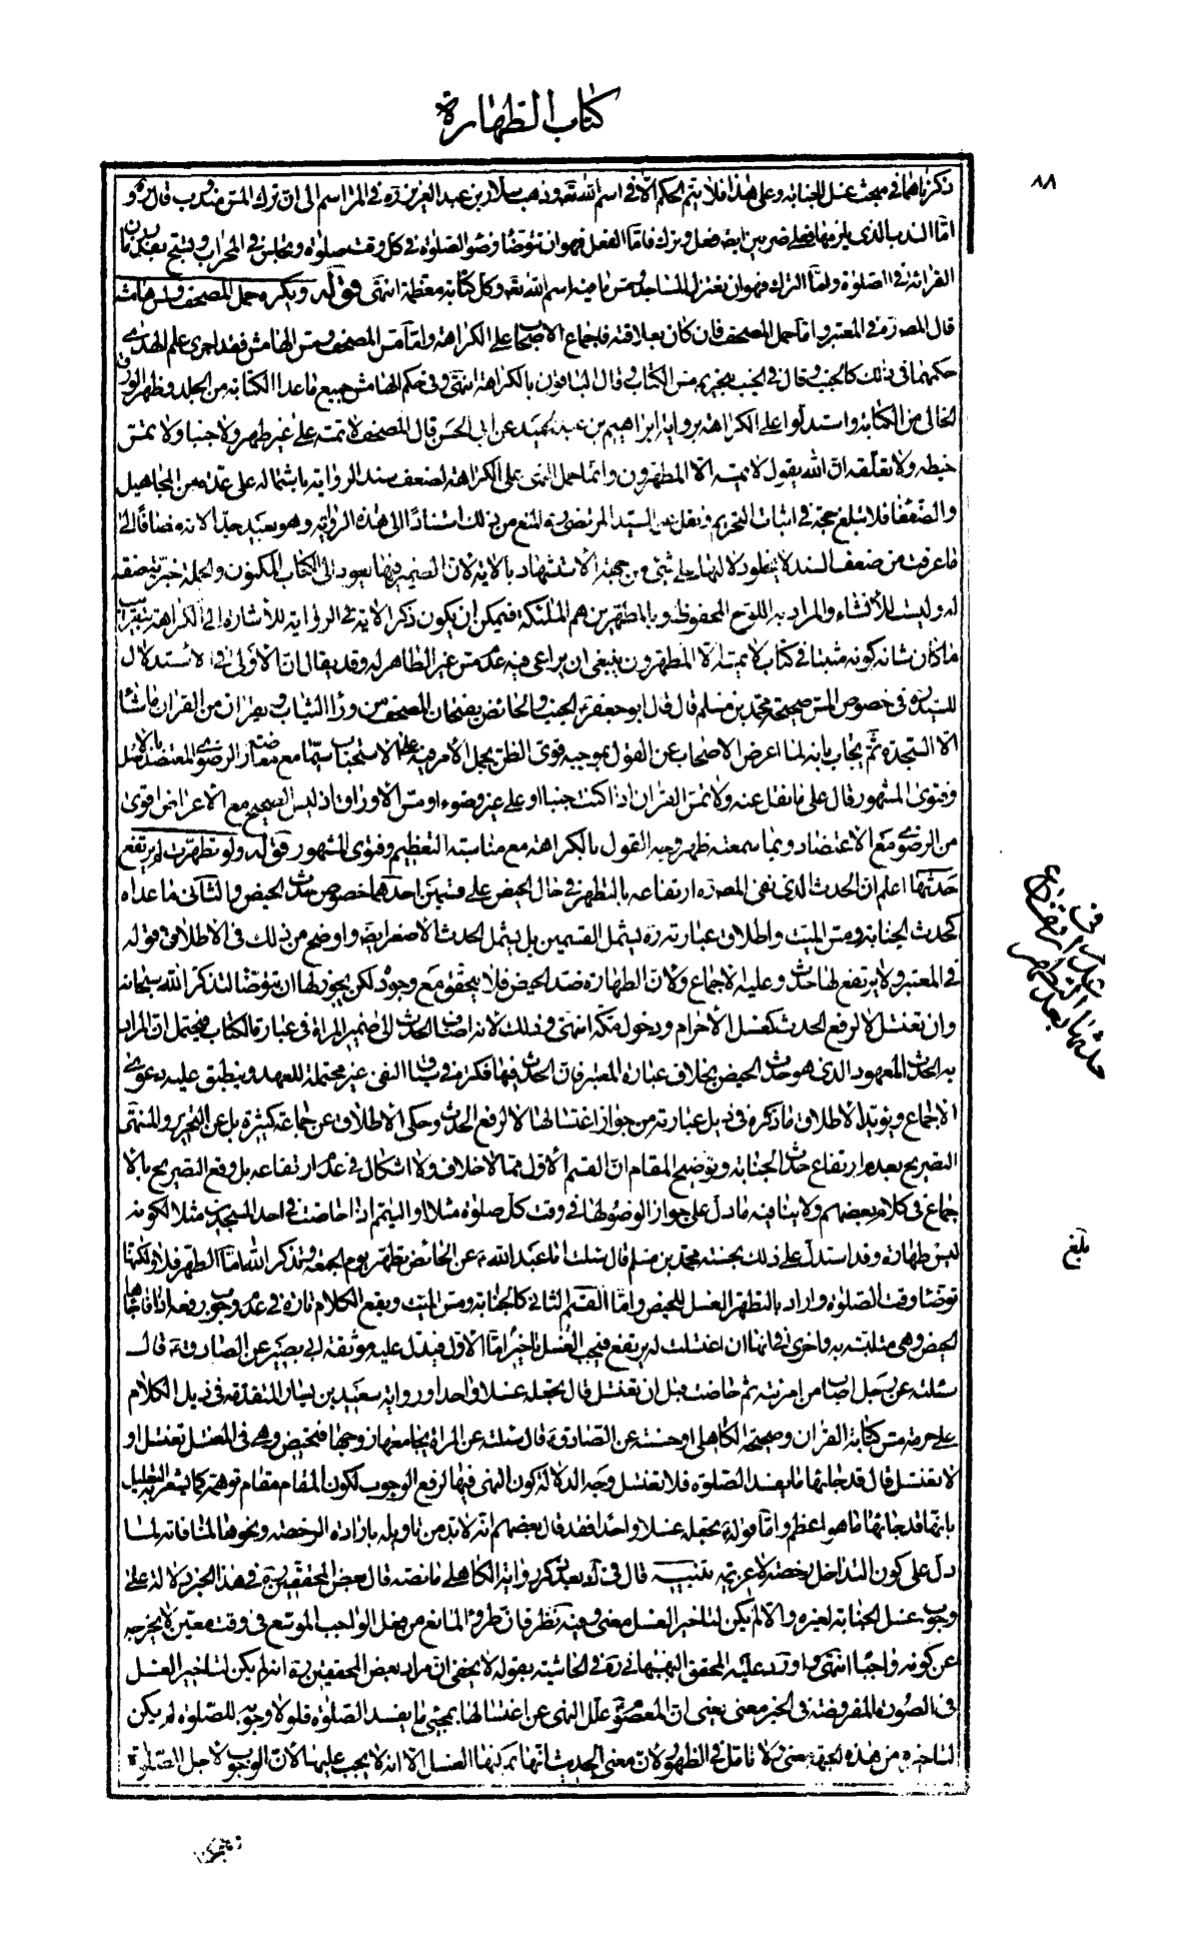 كتاب الطهارة
٨٨
ذكرناهما في مبحث غسل الجنابة وعلى هذا فلا يتم الحكم الا في اسم الله تعالى وذهب سلار بن عبد العزيز ره في المراسم الى ان ترك المس مندوب قال ره و
امّا الندب الذي يلزمها فعلى ضربين ايضا فعل وترك فامّا الفعل فهو ان تتوضأ وضوء الصلوة في كل وقت صلوة وتجلس في المحراب وتسبح بقدر زمان
القرائة في الصلوة وامّا الترك فهو ان تعتزل المساجد ومس ما فيه اسم الله تعالى وكل كتابة معظمة انتهى قوله ويكره حمل المصحف ولمس هامشه
قال المصره في المعتبر وامّا حمل المصحف فان كان بعلاقته فاجماع الاصحاب على الكراهة وامّا مس المصحف ومس الهامش فقد اجرى علم الهدى
حكمهما في ذلك كالجنب وقال في الجنب يحرم مس الكتاب وقال الباقون بالكراهة انتهى وفي حكم الهامش جميع ما عدا الكتابة من الجلد وظهر الورق
الخالي من الكتابة واستدلوا على الكراهة برواية ابراهيم بن عبد الحميد عن ابي الحسن قال المصحف لا تمسه على غير طهر ولا جنبا ولا تمس
خيطه ولا تعلقه ان الله يقول لا يمسه الا المطهرون وانما حمل النهى على الكراهة لضعف سند الرواية باشتماله على عدة من المجاهيل
والضعفاء فلا تبلغ حجة في اثبات التحريم ونقل عن السيد المرتضى ره المنع من ذلك استنادًا الى هذه الرواية وهو بعيد جدا لانه مضافًا الى
ما عرفت من ضعف السند لا يخلو دلالتها على شئ من جهة الاستشهاد بالاية لان الضمير فيها يعود الى الكتاب المكنون والجملة خبرية صفة
له وليست للأنشاء والمراد به اللوح المحفوظ وبالمطهرين هم الملئكة فيمكن ان يكون ذكر الاية في الرواية للأشارة الى الكراهة بتقريب
ما كان شانه كونه مثبتا في كتاب لا يمسه الا المطهرون ينبغى ان يراعى فيه عدم مس غير الطاهر له وقد يقال ان الأولى في الاستدلال
للسيد ره في خصوص المس صحيحة محمد بن مسلم قال قال ابو جعفر ع الجنب والحائض يفتحان المصحف من وراء الثياب ويقرئان من القران ما شاءا
الا السجدة ثم يجاب بانه لما اعرض الاصحاب عن القول بموجبه قوى الظن بحمل الأمر فيه على الاستحباب سيّما مع معارضته الرضوي المعتضد بالاصل
وفتوى المشهور قال على ما نقل عنه ولا تمس القران اذا كنت جنبا او على غير وضوء او مس الاوراق اذ ليس الصحيح مع الاعراض اقوى
من الرضوى مع الاعتضاد وبما سمعته ظهر وجه القول بالكراهة مع مناسبته التعظيم وفتوى المشهور قوله ولو تطهرت لم يرتفع
حدثها اعلم ان الحدث الذي نفى المصره ارتفاعه بالتطهر في حال الحيض على قسمين احدهما خصوص حدث الحيض والثاني ما عداه
كحدث الجنابة ومس الميت واطلاق عبارته ره يشمل القسمين بل يشمل الحدث الأصغر ايضا واوضح من ذلك في الاطلاق قوله
في المعتبر ولا يرتفع لها حدث وعليه الاجماع ولان الطهارة ضد الحيض فلا يتحقق مع وجوده لكن يجوز لها ان تتوضأ لتذكر الله سبحانه
وان تغتسل لا لرفع الحدث كغسل الأحرام ودخول مكة انتهى وذلك لانه اضاف الحدث الى ضمير المراة في عبارة الكتاب فيحتمل ان المراد
به الحدث المعهود الذي هو حدث الحيض بخلاف عبارة المعتبر فان الحدث فيها نكرة في سياق النفى غير محتملة للعهد وينطبق عليه دعوى
الاجماع ويؤيد الاطلاق ما ذكره في ذيل عبارته من جواز اغتسالها لا لرفع الحدث وحكى الاطلاق عن جماعة كثيرة بل عن التحرير والمنتهى
التصريح بعدم ارتفاع حدث الجنابة وتوضيح المقام ان القسم الأول مما لا خلاف ولا اشكال في عدم ارتفاعه بل وقع التصريح بالا
جماع في كلام بعضهم ولا ينافيه ما دل على جواز الوضوء لها في وقت كل صلوة مثلا او التيمم اذا حاضت في احد المسجدين مثلا لكونه
ليس طهارة وقد استدل على ذلك بحسنة محمد بن مسلم قال سئلت ابا عبد الله ع عن الحائض تطهر يوم الجمعة وتذكر الله امّا الطهر فلا ولكنها
توضأ وقت الصلوة واراد بالتطهر الغسل للحيض وامّا القسم الثاني كالجنابة ومس الميت ويقع الكلام تارة في عدم وجوب رفعه اذا فاجاها
الحيض وهى متلبسة به واخرى في انها ان اغتسلت لم يرتفع فيجب الغسل اخيرًا امّا الأول فيدل عليه موثقة ابي بصير عن الصادق ع قال
سئلته عن رجل اصاب من امرئته ثم حاضت قبل ان تغتسل قال تجعله غسلا واحدا ورواية سعيد بن يسار المتقدمة في ذيل الكلام
على حرمة مس كتابة القران وصحيحة الكاهلي او حسنته عن الصادق ع قال سئلته عن المراة يجامعها زوجها فتحيض وهى في المغتسل تغتسل او
لا تغتسل قال قد جائها ما يفسد الصلوة فلا تغتسل وجه الدلالة كون النهى فيها لرفع الوجوب لكون المقام مقام توهمه كما يشعر به التعليل
بانها قد جائها ما هو اعظم وامّا قوله ع تجعله غسلا واحدا فقد قال بعضهم انه لا بد من تاويله بارادة الرخصة ونحوها لمنافاته لما
دل على كون التداخل رخصة لا عزيمة تنبيه قال في ك بعد ذكر رواية الكاهلي ما نصه قال بعض المحققين ره في هذا الخبر دلالة على
وجوب غسل الجنابة لغيره والا لم يكن لتاخير الغسل معنى وفيه نظر فان طروّ المانع من فعل الواجب الموسّع في وقت معين لا يخرجه
عن كونه واجبًا انتهى واورد عليه المحقق البهبهاني ره في الحاشية بقوله لا يخفى ان مراد بعض المحققين ره انه لم يكن لتاخير الغسل
في الصورة المفروضة في الخبر معنى يعنى ان المعصوم ع علل النهى عن اغتسالها بمجئ ما يفسد الصلوة فلولا وجوبه للصلوة لم يكن
لتاخيره من هذه الجهة معنى ولا تامل في الظهور لان معنى الحديث انها تركها الغسل الا انه لا يجب عليها لان الوجوب لاجل الصلوة
في
عدم ارتفاع
حدثها
بعد التطهر
بلغ